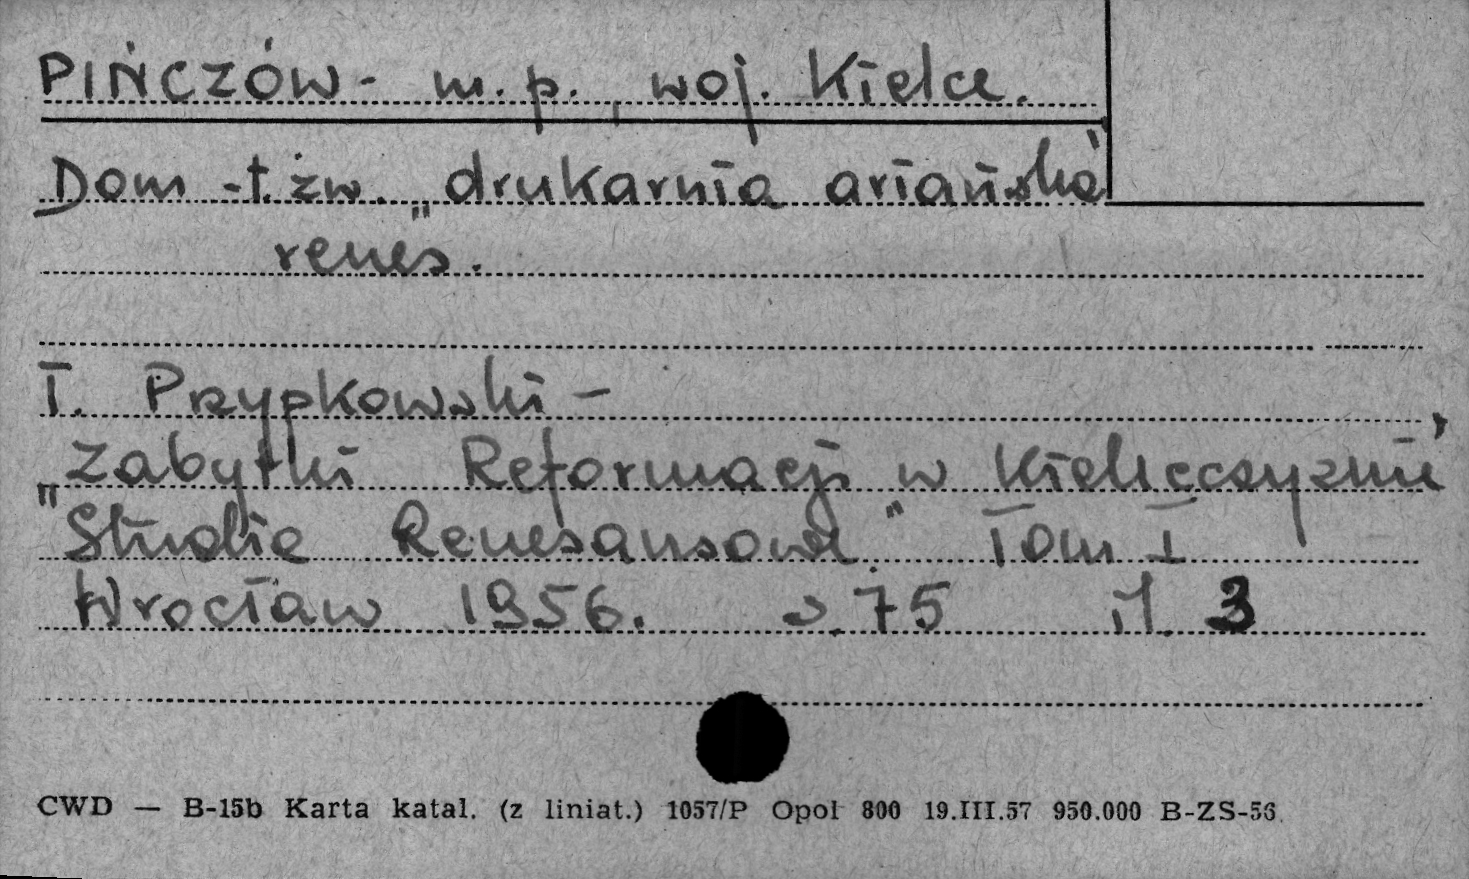 PIŃCZÓW - m. p., woj. Kielce.
Dom - t. zw. „drukarnia ariańska"
renes.
T. Przypkowski -
Zabytki Reformacji w Kielecczyźnie,
"Studia Renesansowe" Tom I
Wrocław 1956. s. 75 il. 3
CWD — B-15b Karta katal. (z liniat.) 1057/P Opol 800 19.III.57 950.000 B-ZS-56